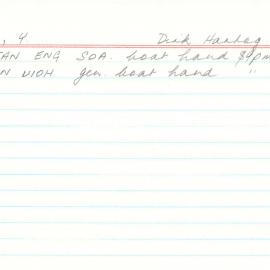 , 4 Dirk Hartog
TAN ENG SOA. boat hand $4pm
N UIOH gen. boat hand "